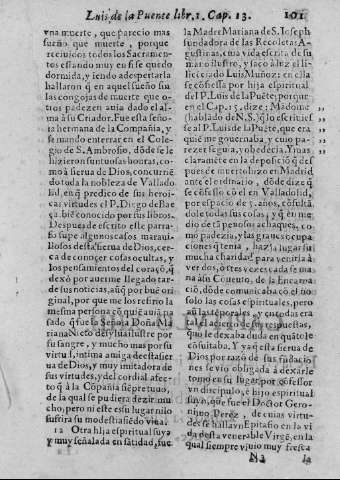 Luis de la Puente libr. 1. Cap. 13. 101
vna muerte, que parecio mas
sueño que muerte, porque
recluidos todos los Sacramen-
tos estando muy en si se quedo
dormida, y iendo a despertarla
hallaron q̃ en aquel sueño sin
las congojas de muerte que o-
tros padezen auia dado el al-
ma à su Criador. Fue esta seño-
ra hermana de la Compañia, y
se mando enterrar en el Cole-
gio de S. Ambrosio, dõde se le
hizieron suntuosas honras, co-
mo à sierua de Dios, concurriẽ
do toda la nobleza de Vallado
lid, en q̃ predicò de sus heroi-
cas virtudes el P. Diego de Bae
ça, biẽ conocido por sus libros.
Despues de escrito esto parra-
fo supe algunos casos maraui-
llosos desta sierua de Dios, cer-
ca de conocer cosas ocultas, y
los pensamientos del coraçõ, q̃
dexò por auerme llegado tar-
de sus noticias, aũq̃ por buẽ ori
ginal, por que me los refirio la
mesma persona cõ quiẽ auiã pa
sado q̃ fue la Señora Doña Ma
riana Nieto de
su sangre, y mucho mas por su
virtud, intima amiga de esta sier
ua de Dios, y muy imitadora de
sus virtudes, y del cordial afec-
to q̃ à la Cõpañia siẽpre tuuo,
de la qual se pudiera dezir mu
cho, pero ni este es su lugar ni lo
sufrira su modestia siẽdo viua.
12 Otra hija espiritual suya
y muy señalada en sãtidad, fue
la Madre Mariana de S. Ioseph
fundadora de las Recoletas A-
gustinas, cuia vida escrita de su
mano ilustrò, y sacò à luz el li-
cẽciado Luis Muñoz: en ella
se cõfiessa por hija espiritual
del P. Luis de la Puẽte; porque
en el Cap. 15. dize: Mãdome
(hablado de N. S.) q̃ lo escriuies
se al P. Luis de la Puẽte, que era
quiẽ me gouernaba, y cuio pa-
rezer seguia, y obedecia. Y mas
claramẽte en la deposiciõ q̃ des
pues de muerto hizo en Madrid
ante el ordinario, dõde dize q̃
se cõfessò cõ el en Valladolid,
por espacio de 5. años, cõsultã
dole todas sus cosas, y q̃ en me
dio de tã penosos achaques, co-
mo padezia, y las graues ocupa
ciones q̃ tenia, hazia lugar su
mucha charidad para venirla à
ver dos, ò tres vezes cada sema
na à su Conuẽto, de la Encarna
ciõ, dõde comunicaba cõ el no
solo las cosas espirituales, pero
aũ las tẽporales, y en todas era
tal el acierto de sus respuestas,
que no dexaba duda en quãto le
cõsultaba. Y ya q̃ esta sierua de
Dios por razõ de sus fũdacio
nes se viò obligada à dexarle
tomò en su lugar por cõfessor
vn discipulo, è hijo espiritual
suyo, que fue el Doctor Gero-
nimo Perez, de cuias virtu-
des se hallarà vn Epitafio en la vi
da desta venerable Virgẽ, en la
qual siempre viuio muy fresca
Na la